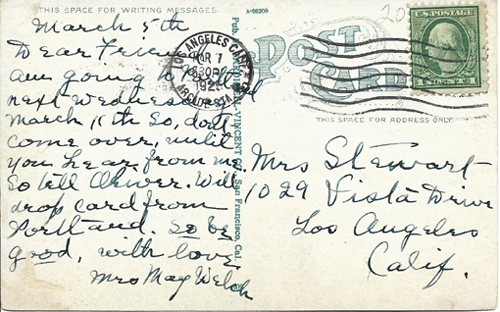 THIS SPACE FOR WRITING MESSAGES.
A-86209
March 5th
Dear Friend, I
am going to
next Wednesday
March 11th So, don't
come over, until
you hear from me
So tell Will
drop card from
Portland. So be
good, with love
Mrs May Welch
LOS ANGELES, CALIF.
MAR
630PM
192
ARCADE STA.
Pub. VINCENT CO., San Francisco, Cal.
POST CARD
U.S. POSTAGE
THIS SPACE FOR ADDRESS ONLY.
Mrs Stewart
1029 Vista Drive
Los Angeles
Calif.